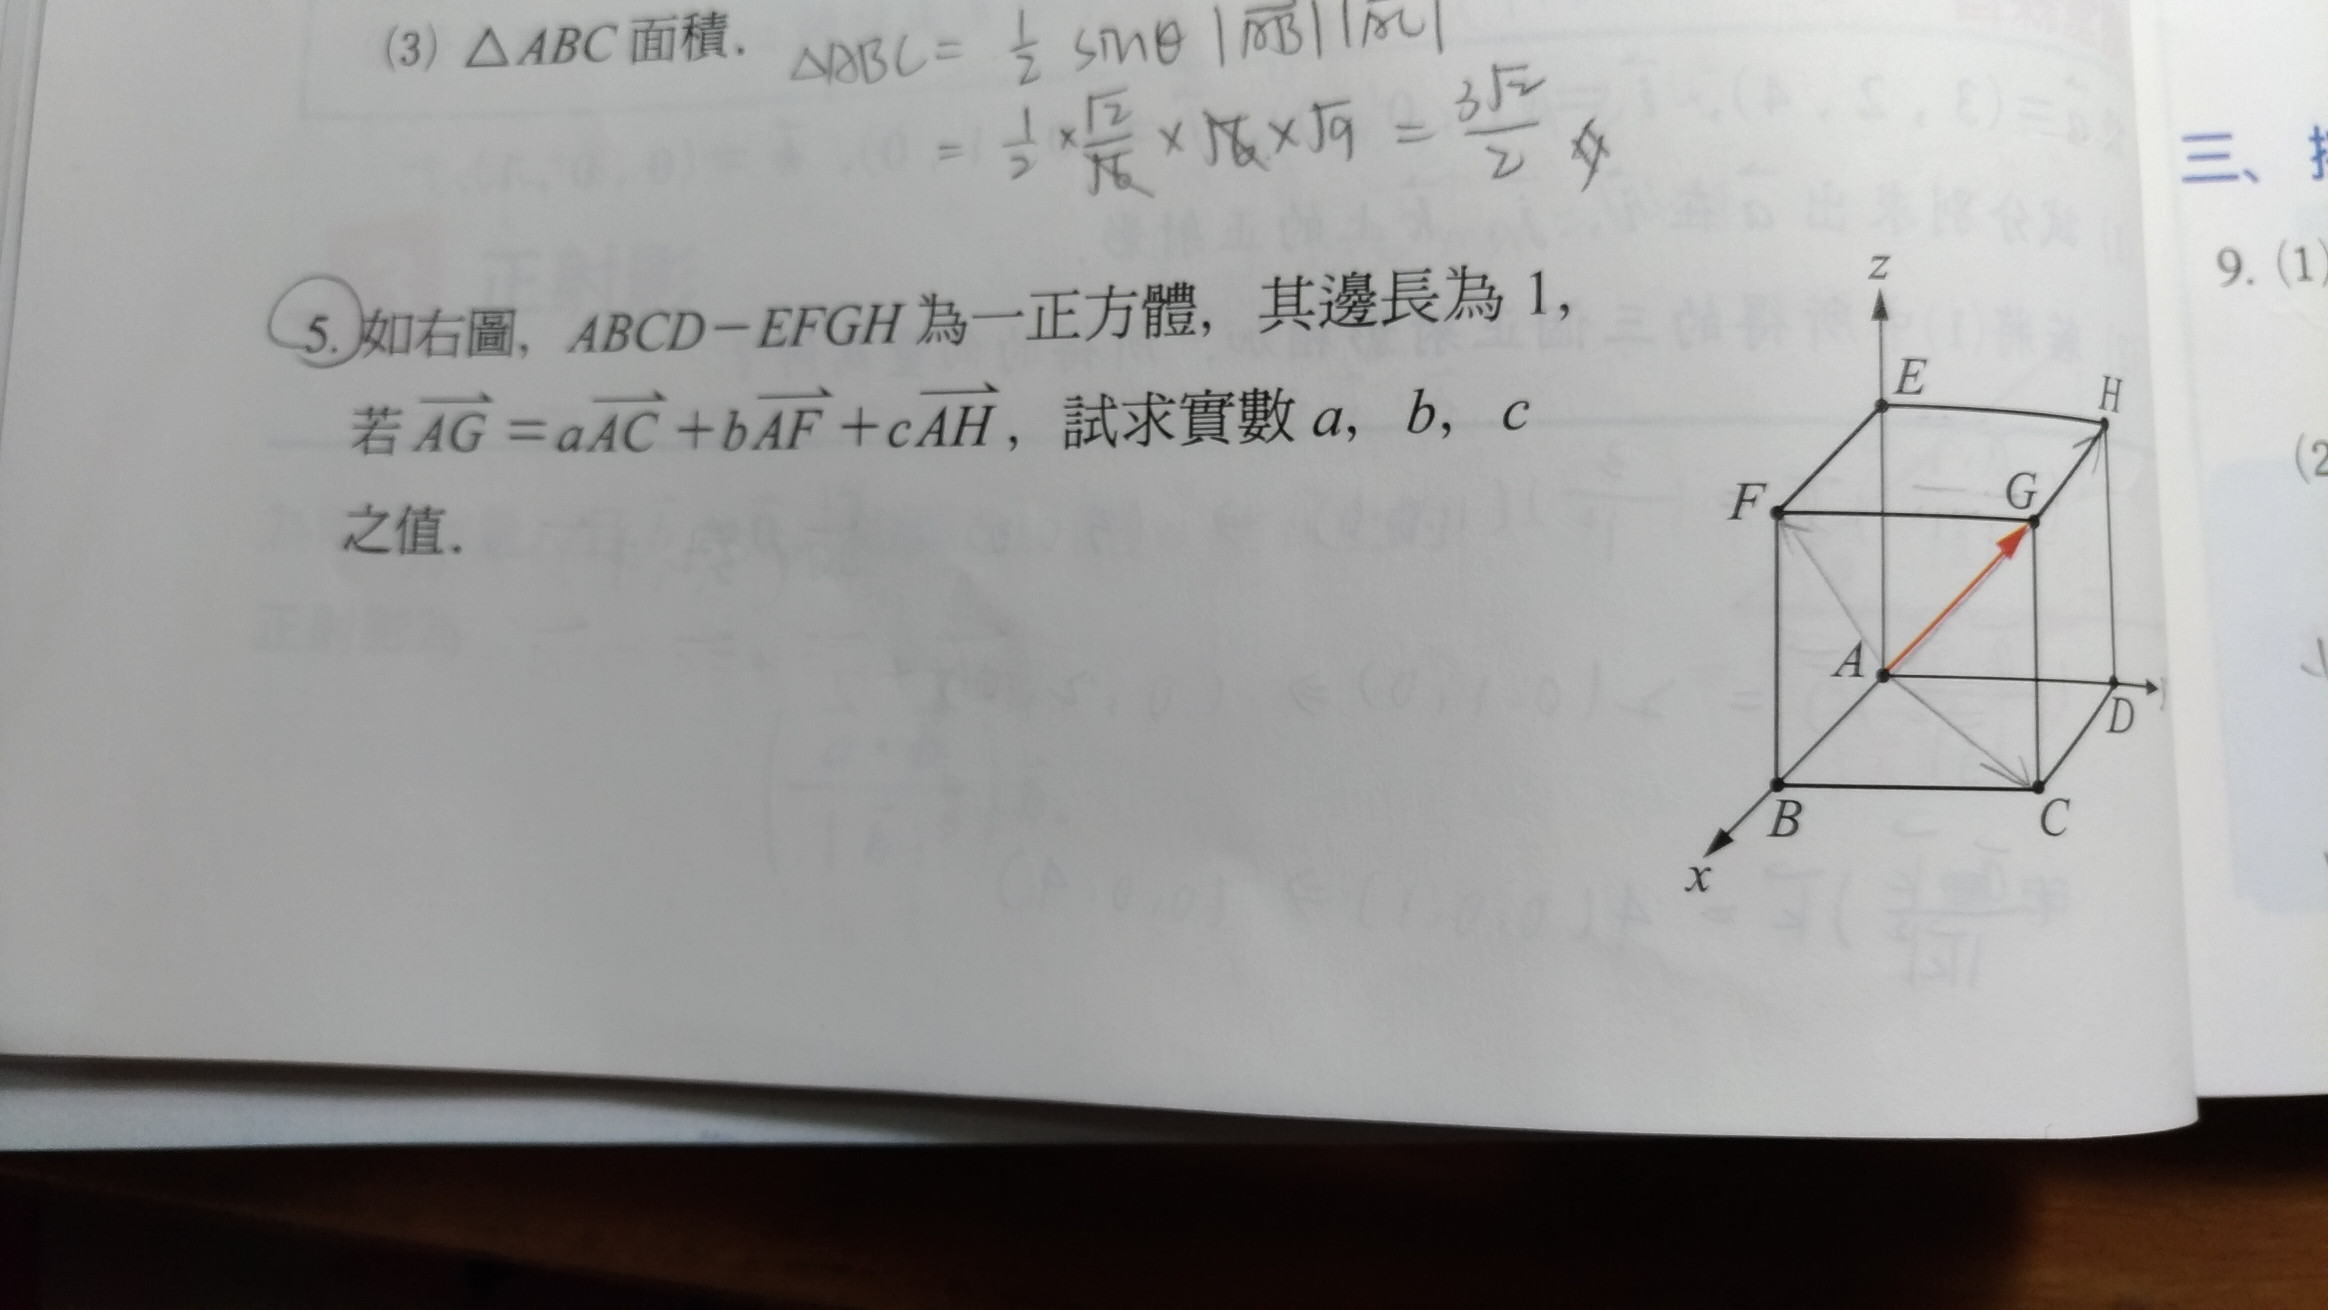 (3) △ABC 面積． △ABC = 1/2 sinθ |AB||AC|
= 1/2 × √2/√6 × √6 × √9 = 3√2/2
5. 如右圖，ABCD－EFGH 為一正方體，其邊長為 1，
若 AG = aAC + bAF + cAH，試求實數 a，b，c
之值．
z
E
H
F
G
A
D
B
C
x
三、
9. (1)
(2